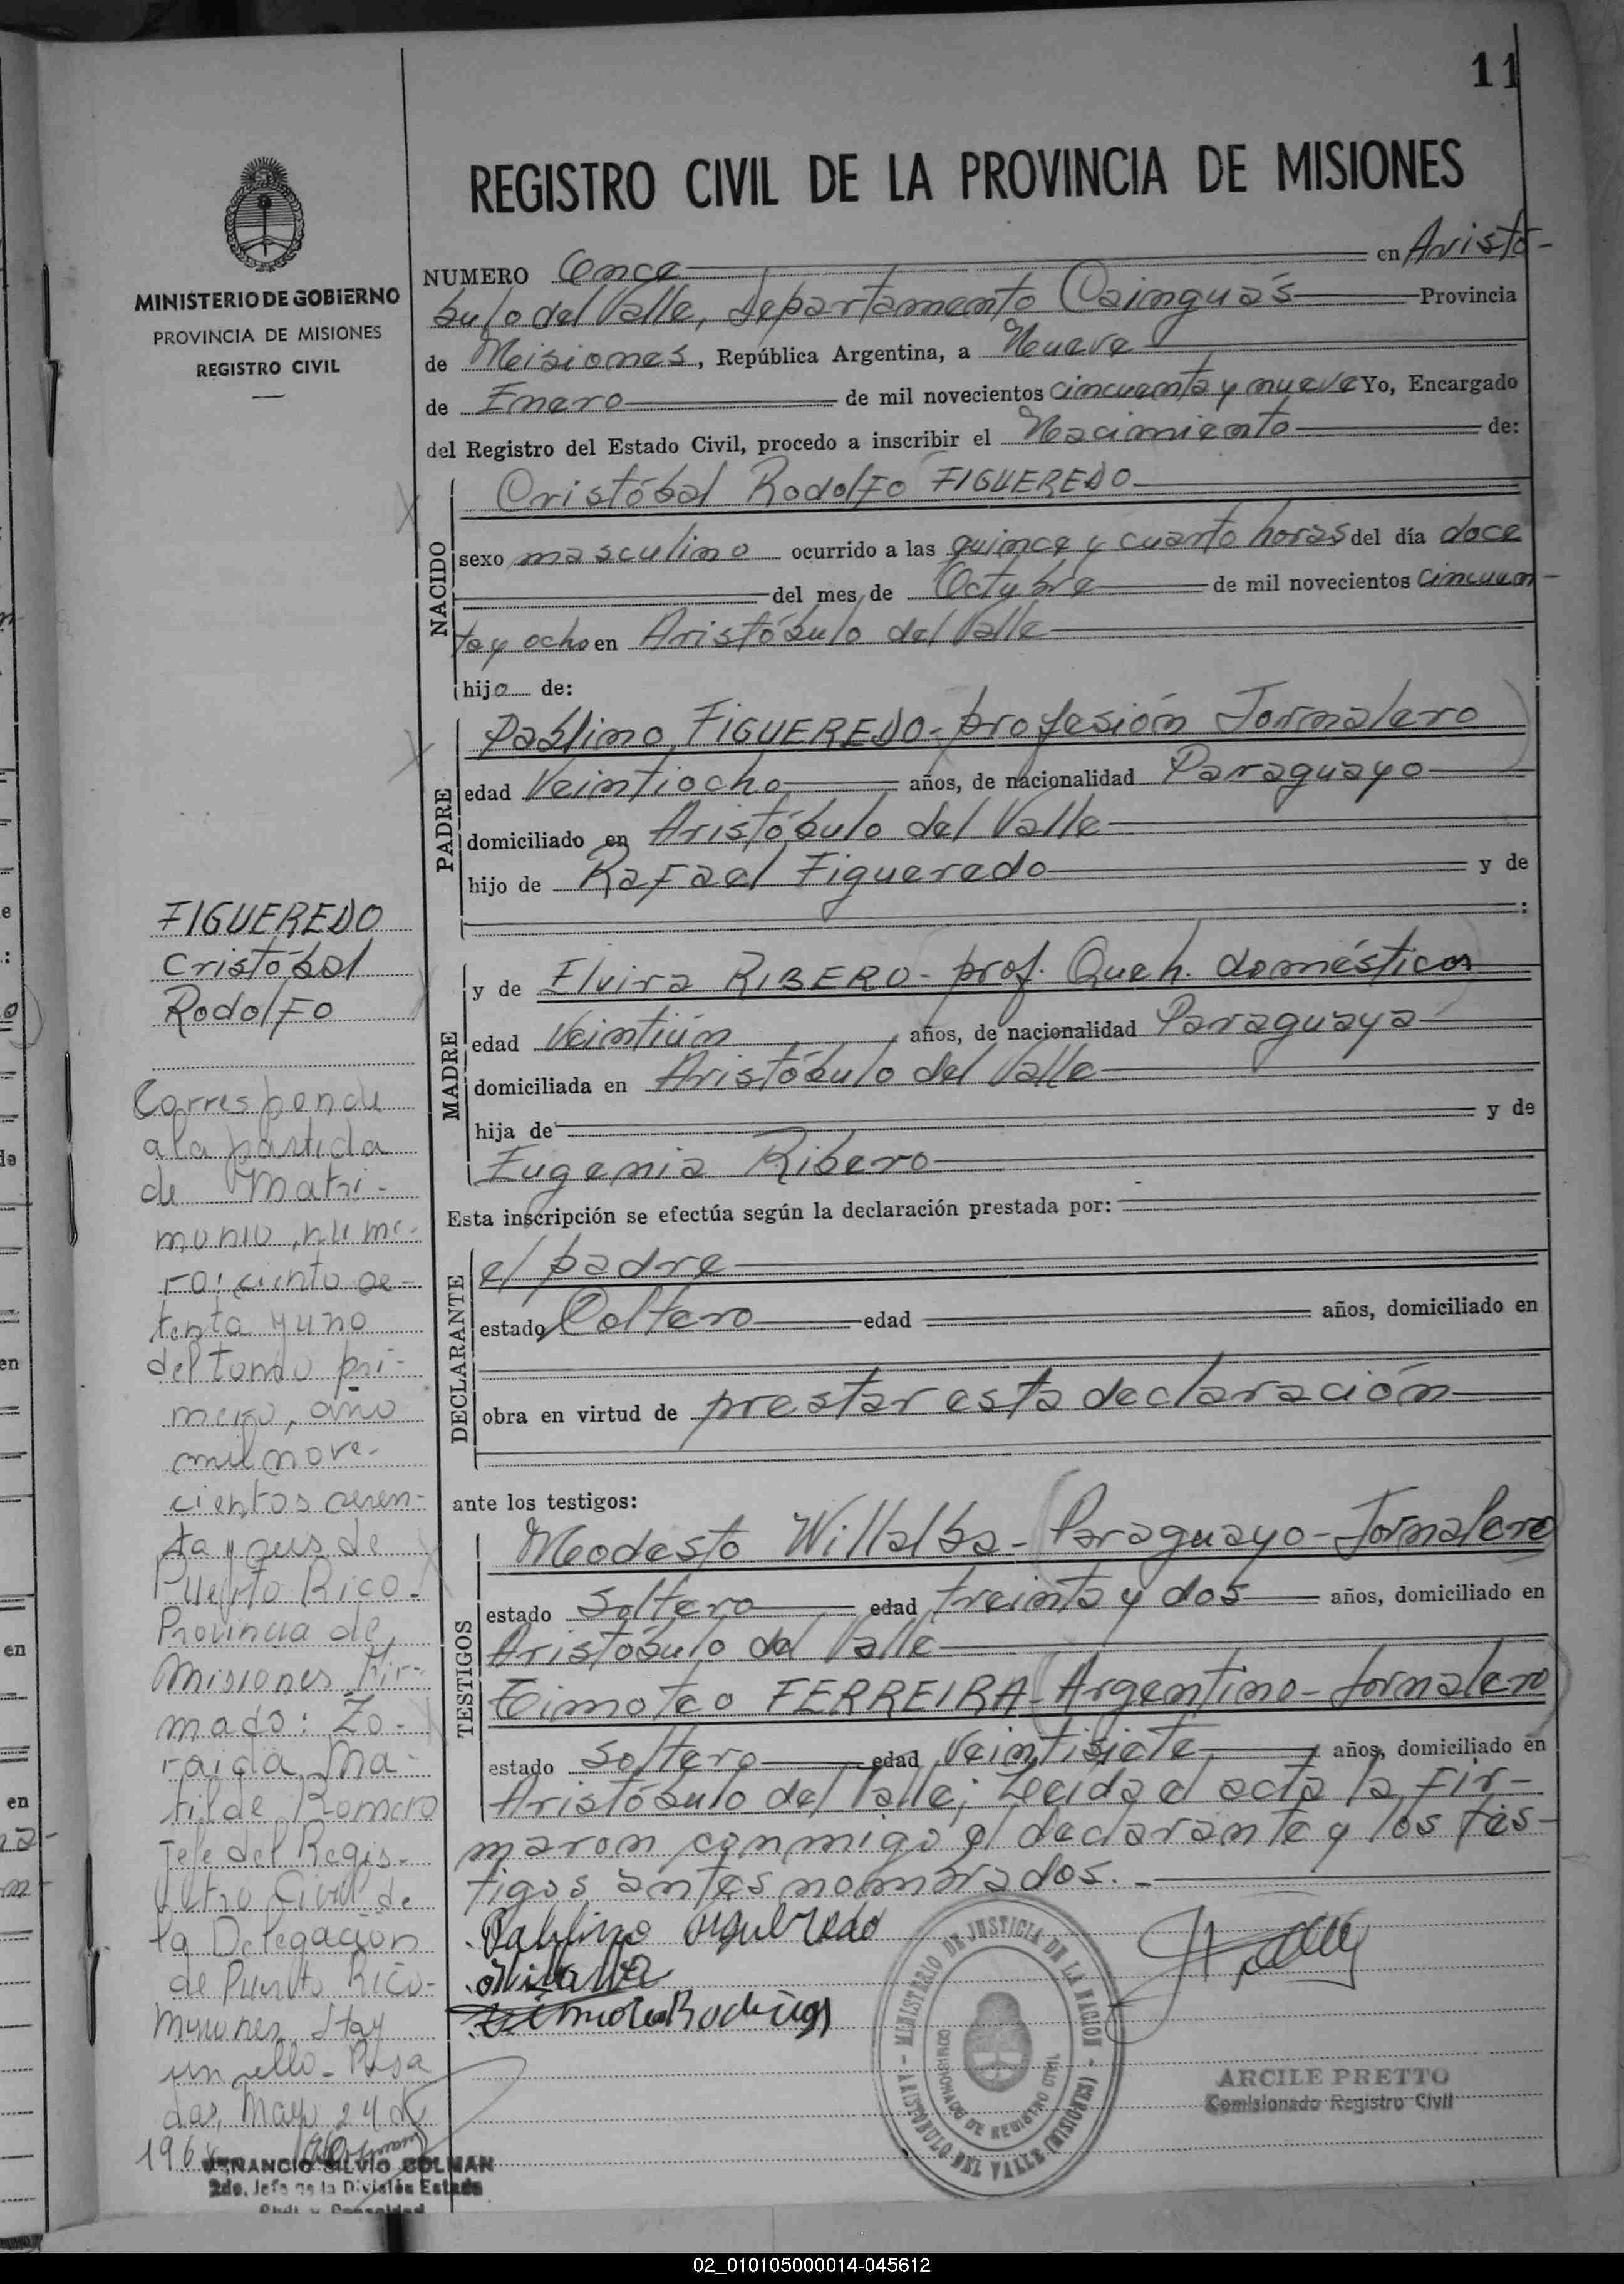 11
REGISTRO CIVIL DE LA PROVINCIA DE MISIONES
MINISTERIO DE GOBIERNO
PROVINCIA DE MISIONES
REGISTRO CIVIL
NUMERO Once en Aristó-
bulo del Valle, Departamento Cainguás Provincia
de Misiones, República Argentina, a Nueve
de Enero de mil novecientos cincuenta y nueve Yo, Encargado
del Registro del Estado Civil, procedo a inscribir el Nacimiento de:
NACIDO
Cristóbal Rodolfo FIGUEREDO
sexo masculino ocurrido a las quince y cuarto horas del día doce
del mes de Octubre de mil novecientos cincuen-
ta y ocho en Aristóbulo del Valle
hijo de:
PADRE
Pablino FIGUEREDO - profesión Jornalero
edad Veintiocho años, de nacionalidad Paraguayo
domiciliado en Aristóbulo del Valle
hijo de Rafael Figueredo y de
:
MADRE
y de Elvira RIBERO - prof. Queh. domésticos
edad Veintiún años, de nacionalidad Paraguaya
domiciliada en Aristóbulo del Valle
hija de y de
Eugenia Ribero
Esta inscripción se efectúa según la declaración prestada por:
DECLARANTE
el padre
estado Soltero edad años, domiciliado en
obra en virtud de prestar esta declaración
ante los testigos:
TESTIGOS
Modesto Villalba - Paraguayo - Jornalero
estado Soltero edad treinta y dos años, domiciliado en
Aristóbulo del Valle
Timoteo FERREIRA - Argentino - Jornalero
estado Soltero edad Veintisiete años, domiciliado en
Aristóbulo del Valle; Leida el acta la fir-
maron conmigo el declarante y los tes-
tigos antes nombrados. -
Pablino Figueredo
MINISTERIO DE JUSTICIA DE LA NACION
COMISIONADO DE REGISTRO CIVIL
ARISTOBULO DEL VALLE (MISIONES)
ARCILE PRETTO
Comisionado Registro Civil
FIGUEREDO
Cristóbal
Rodolfo
Corresponde
a la partida
de Matri-
monio, núme-
ro: ciento se-
tenta y uno
del tomo pri-
mero, año
mil nove-
cientos sesen-
ta y seis de
Puerto Rico -
Provincia de
Misiones. Fir-
mado: Zo-
raida Ma-
tilde Romero
Jefe del Regis-
tro Civil de
la Delegación
de Puerto Rico -
Misiones. Hay
un sello - Posa
das, Mayo 24 de
VENANCIO SILVIO COLMAN
2do. Jefe de la División Estado
Civil y Capacidad
02_010105000014-045612